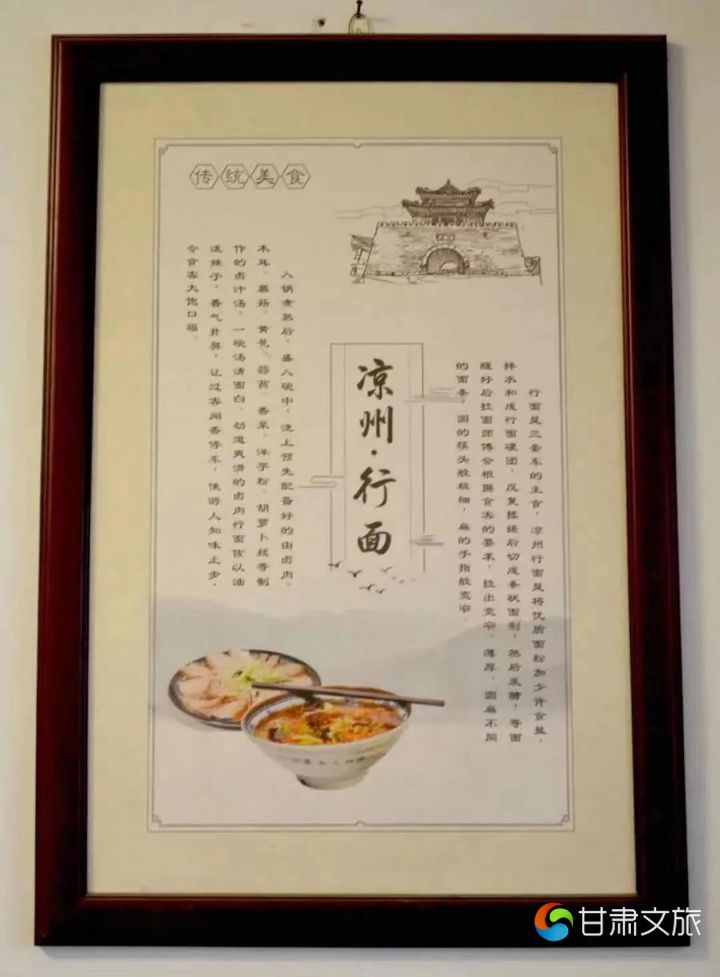 传统美食
凉州·行面
行面是三套车的主食，凉州行面是将优质面粉加少许食盐，
拌水和成行面硬团，反复揉搓后切成条状面剂，然后发酵，等面
醒好后拉面师傅会根据食客的要求，拉出宽窄、薄厚、圆扁不同
的面条，圆的筷头般粗细，扁的手指般宽窄。
入锅煮熟后，盛入碗中，浇上预先配备好的由卤肉、
木耳、蘑菇、黄花、蒜苗、香菜、洋芋粉、胡萝卜丝等制
作的卤汁汤，一碗汤清面白、劲道爽滑的卤肉行面佐以油
泼辣子，香气扑鼻，让过客闻香停车，使游人知味止步，
令食客大饱口福。
甘肃文旅